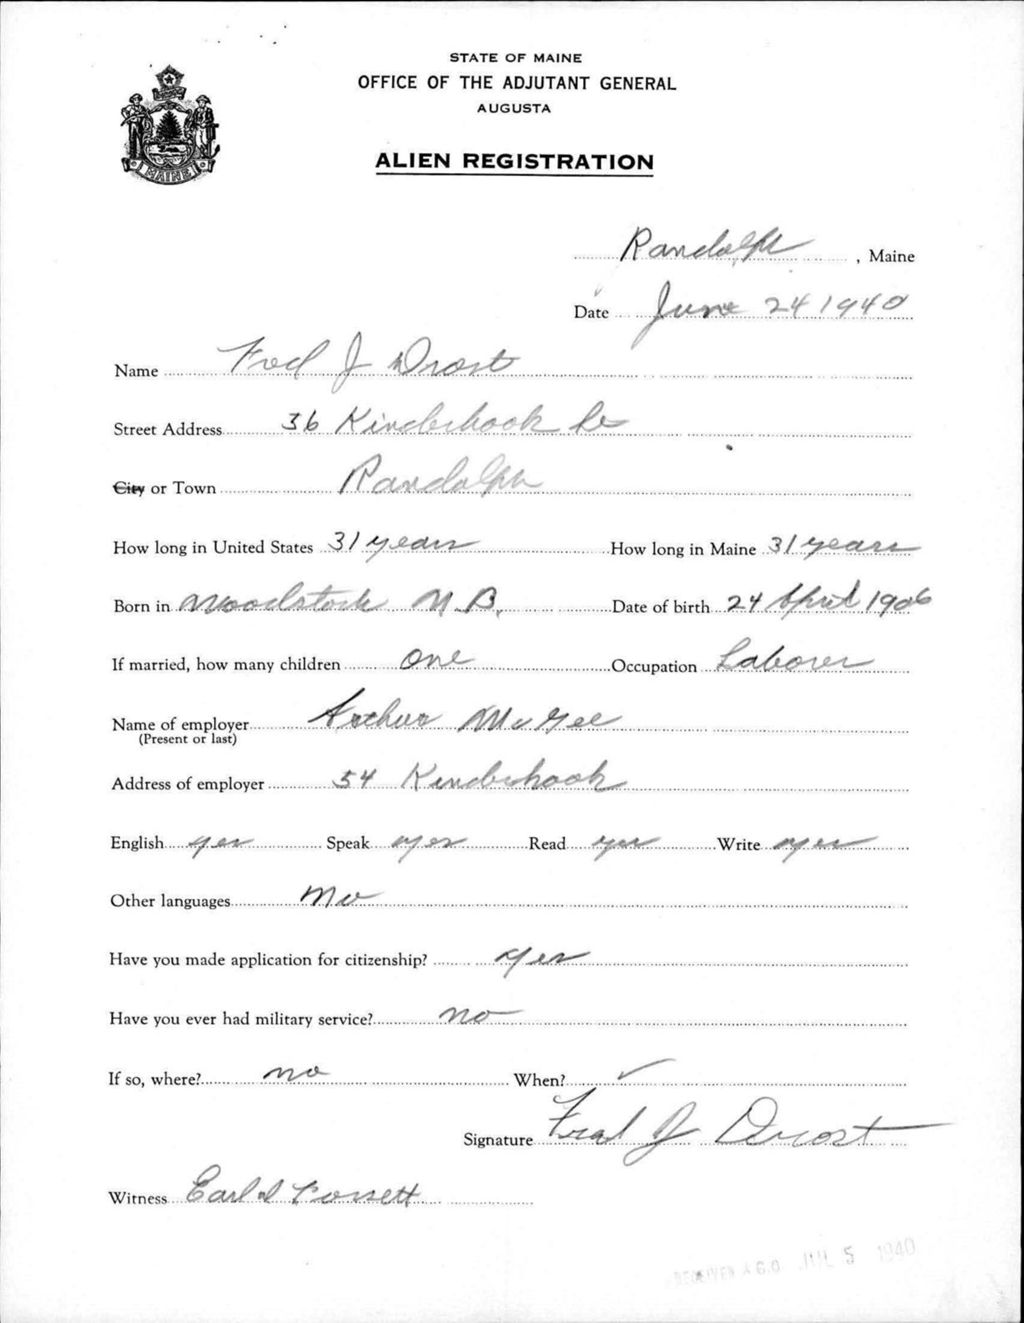 STATE OF MAINE
OFFICE OF THE ADJUTANT GENERAL
AUGUSTA
MAINE
ALIEN REGISTRATION
Randolph, Maine
Date June 24 1940
Name Fred J Drost
Street Address 36 Kinderhook
City or Town Randolph
How long in United States 31 years How long in Maine 31 years
Born in Woodstock N.B. Date of birth 24 April 1906
If married, how many children one Occupation Laborer
Name of employer Arthur McGee
(Present or last)
Address of employer 54 Kinderhook
English yes Speak yes Read yes Write yes
Other languages No
Have you made application for citizenship? yes
Have you ever had military service? no
If so, where? no When? ✓
Signature Fred J Drost
Witness Earl Fossett
RECEIVED A.G.O. JUL 5 1940